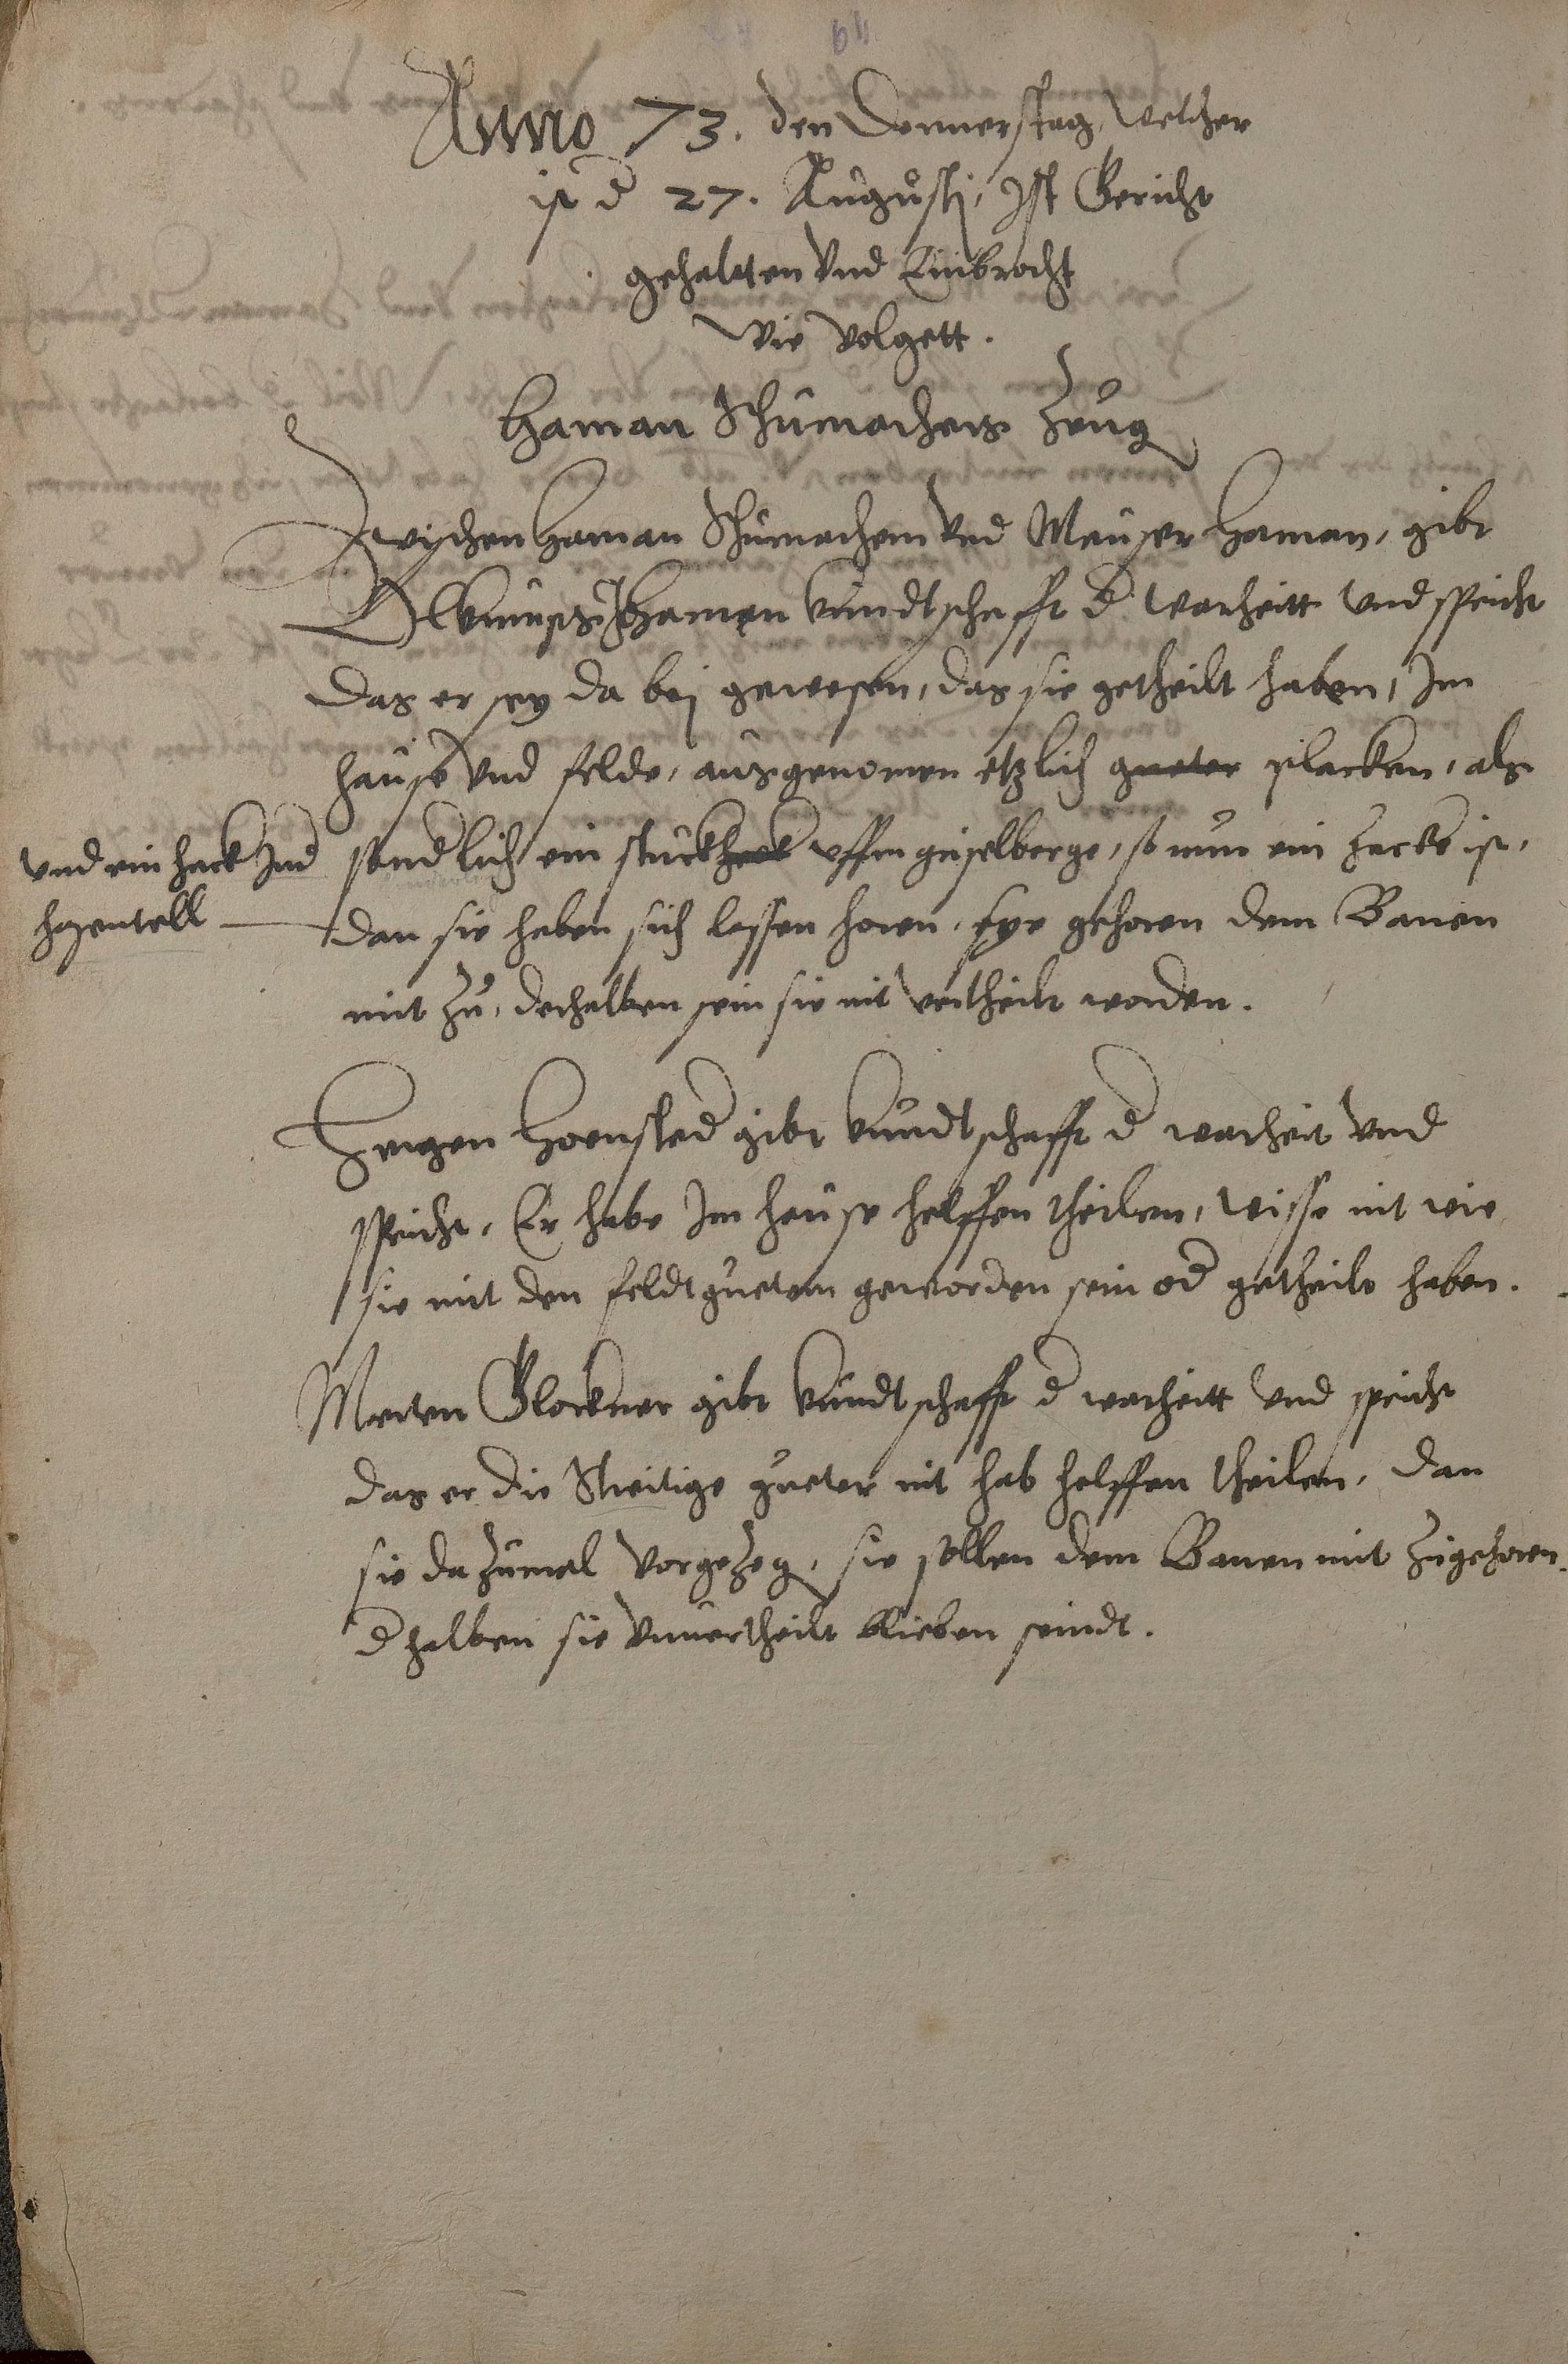 Anno 73. den Donnerstag, welcher
ist d 27. Augustj, Ist Gericht
gehalten Vnd Einbrocht
wie Volgett.
Haman Schumachers Zeug
Zwischen Haman Schumachern Vnd Mauser Haman, gibt
Haman kundtschafft d warheitt Vnd spricht
Das er sey da bej gewesen, das sie getheilt haben, Im
hause Vnd felde, ausgenomen etzlich gueter placken, als
Vnd ein hack Ind
hgentell
sondlich ein stuck hack vffm geiselberge, so nun ein hacke ist,
dan sie haben sich lassen horen, sye gehoren dem Bauen
mit zu, derhalben sein sie nit vertheilt worden.
Hengen Hoensted gibt kundtschafft d warheit Vnd
spricht, Er habe Im hause helffen theilen, wisse nit wie
sie mit den feldtguetern geworden sein od getheilt haben.
Merten Glockner gibt kundtschafft d warheitt Vnd spricht
das er die Streitige gueter nit hab helffen theilen, dan
sie dazumal Vorgezog, sie sollen dem Bauen mit zugehoren,
dhalben sie Vnuertheilt blieben seindt.